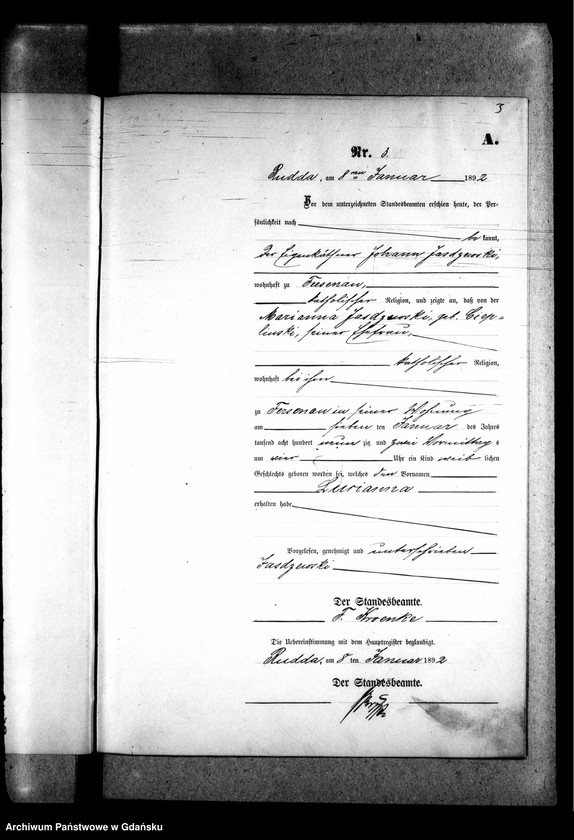 3
A.
Nr. 3.
Rudda, am 8ten Januar 1892
Vor dem unterzeichneten Standesbeamten erschien heute, der Per-
sönlichkeit nach
be kannt,
der Eigenkäthner Johann Jasdzewski,
wohnhaft zu
katholischer Religion, und zeigte an, daß von der
Marianna Jasdzewski, geb. Ciep-
linski, seiner Ehefrau,
katholischer Religion,
wohnhaft bei ihm
zu in seiner Wohnung
am sieben ten Januar des Jahres
tausend acht hundert neun zig und zwei Vormittag s
um vier Uhr ein Kind weib lichen
Geschlechts geboren worden sei, welches den Vornamen
erhalten habe
Vorgelesen, genehmigt und unterschrieben
Jasdzewski
Der Standesbeamte.
F. Kroenke
Die Uebereinstimmung mit dem Hauptregister beglaubigt.
Rudda, am 8 ten Januar 1892
Der Standesbeamte.
Archiwum Państwowe w Gdańsku